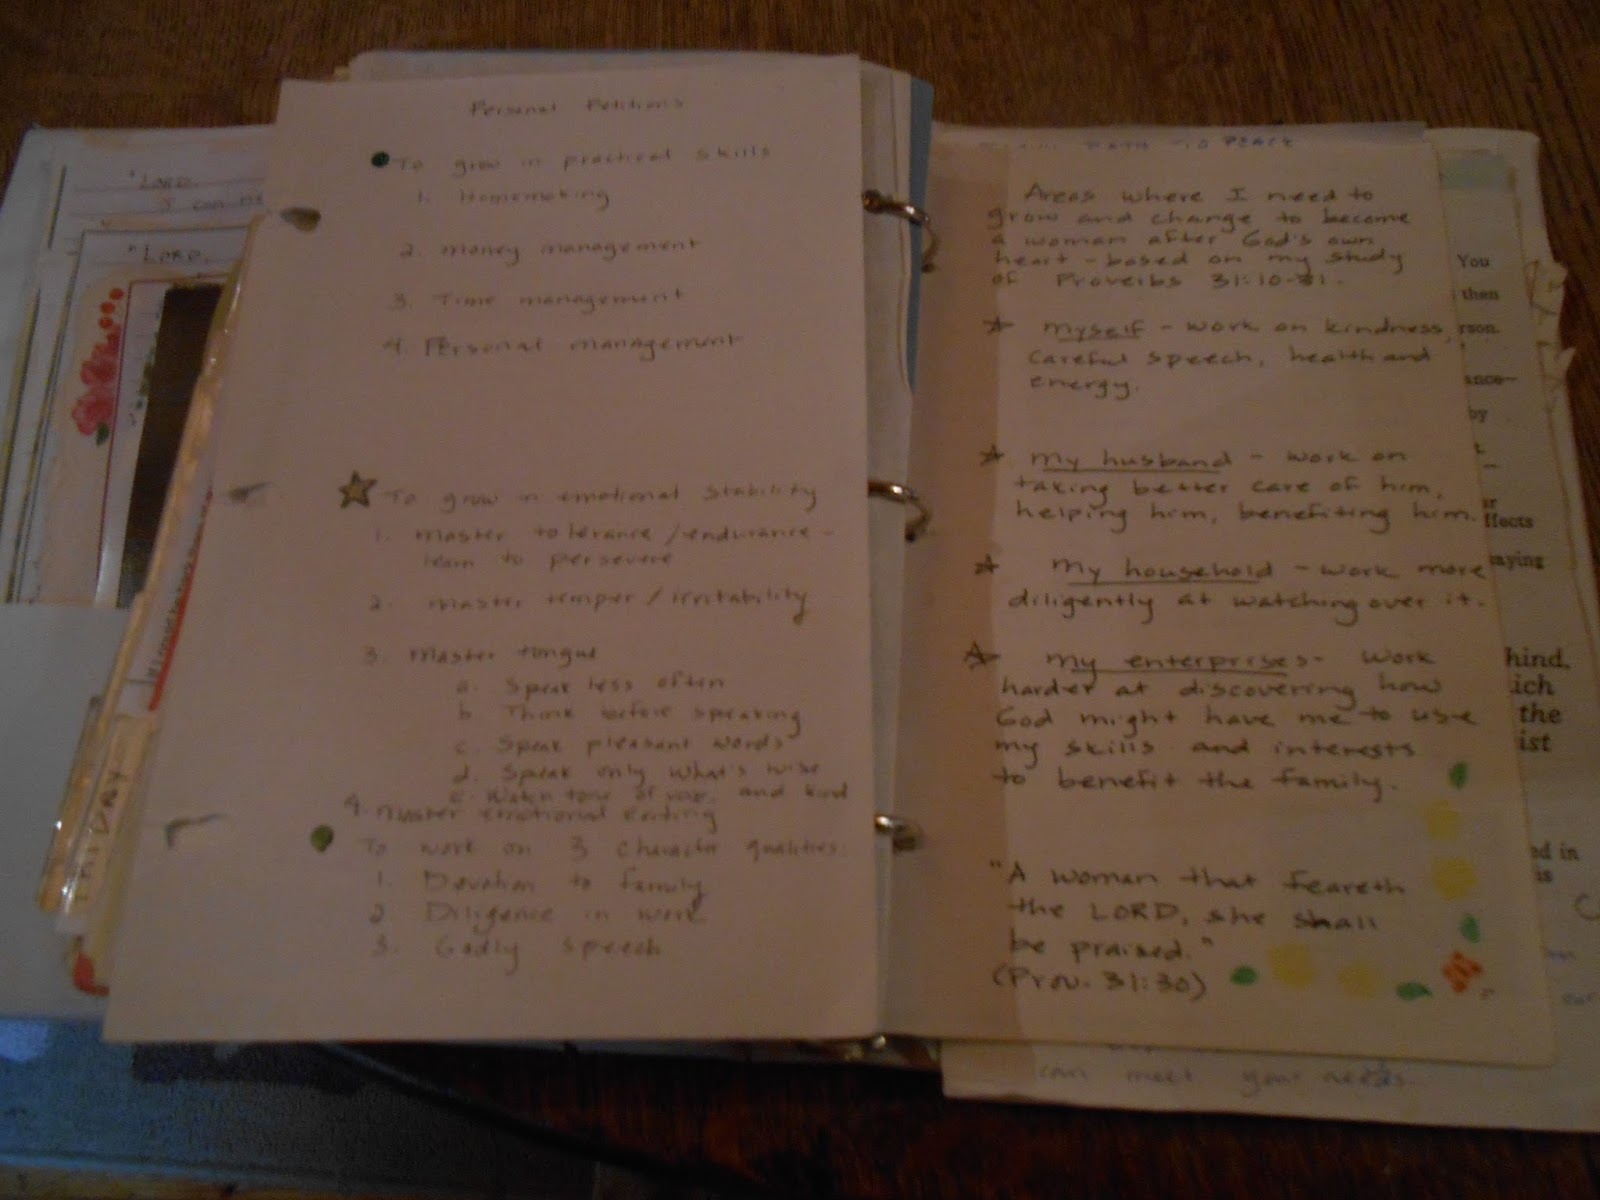 "LORD,
I can
"LORD,
FRIDAY
Personal Petitions
To grow in practical skills
1. Homemaking
2. Money management
3. Time management
4. Personal management
To grow in emotional stability
1. Master tolerance/endurance-
learn to persevere
2. Master temper/irritability
3. Master tongue
a. Speak less often
b. Think before speaking
c. Speak pleasant words
d. Speak only what's wise
e. Watch tone of voice, and kind
4. Master emotional eating
To work on 3 character qualities:
1. Devotion to family
2. Diligence in work
3. Godly speech
PATH TO PEACE
Areas where I need to
grow and change to become
a woman after God's own
heart - based on my study
of Proverbs 31:10-31.
myself - work on kindness,
careful speech, health and
energy.
my husband - work on
taking better care of him,
helping him, benefiting him.
my household - work more
diligently at watching over it.
my enterprises- work
harder at discovering how
God might have me to use
my skills and interests
to benefit the family.
"A woman that feareth
the LORD, she shall
be praised."
(Prov. 31:30)
You
then
rson.
ance-
by
ffects
saying
hind,
ich
the
ist
ed in
is
our
can meet your needs.